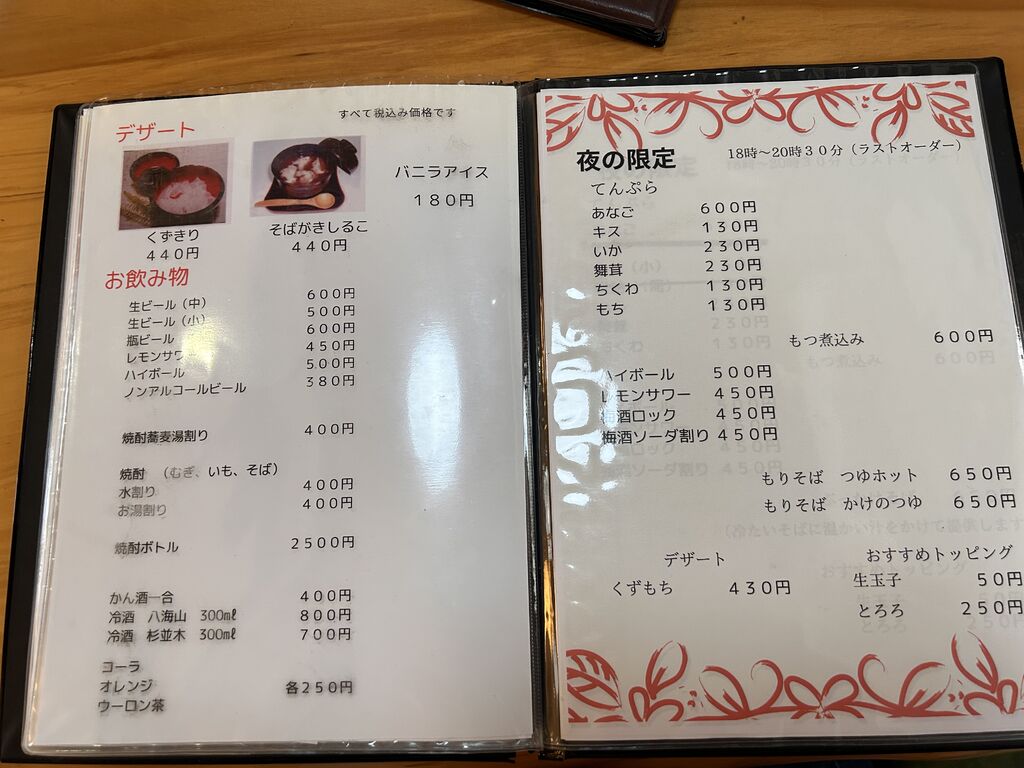 すべて税込み価格です
デザート
バニラアイス
180円
くずきり
440円
そばがきしるこ
440円
お飲み物
生ビール（中） 600円
生ビール（小） 500円
瓶ビール 600円
レモンサワ 450円
ハイボール 500円
ノンアルコールビール 380円
焼酎蕎麦湯割り 400円
焼酎 （むぎ、いも、そば）
水割り 400円
お湯割り 400円
焼酎ボトル 2500円
かん酒一合 400円
冷酒 八海山 300㎖ 800円
冷酒 杉並木 300㎖ 700円
コーラ
オレンジ 各250円
ウーロン茶
夜の限定 18時～20時30分（ラストオーダー）
てんぷら
あなご 600円
キス 130円
いか 230円
舞茸 230円
ちくわ 130円
もち 130円
もつ煮込み 600円
ハイボール 500円
レモンサワー 450円
梅酒ロック 450円
梅酒ソーダ割り 450円
もりそば つゆホット 650円
もりそば かけのつゆ 650円
（冷たいそばに温かい汁をかけて提供します
デザート
くずもち 430円
おすすめトッピング
生玉子 50円
とろろ 250円